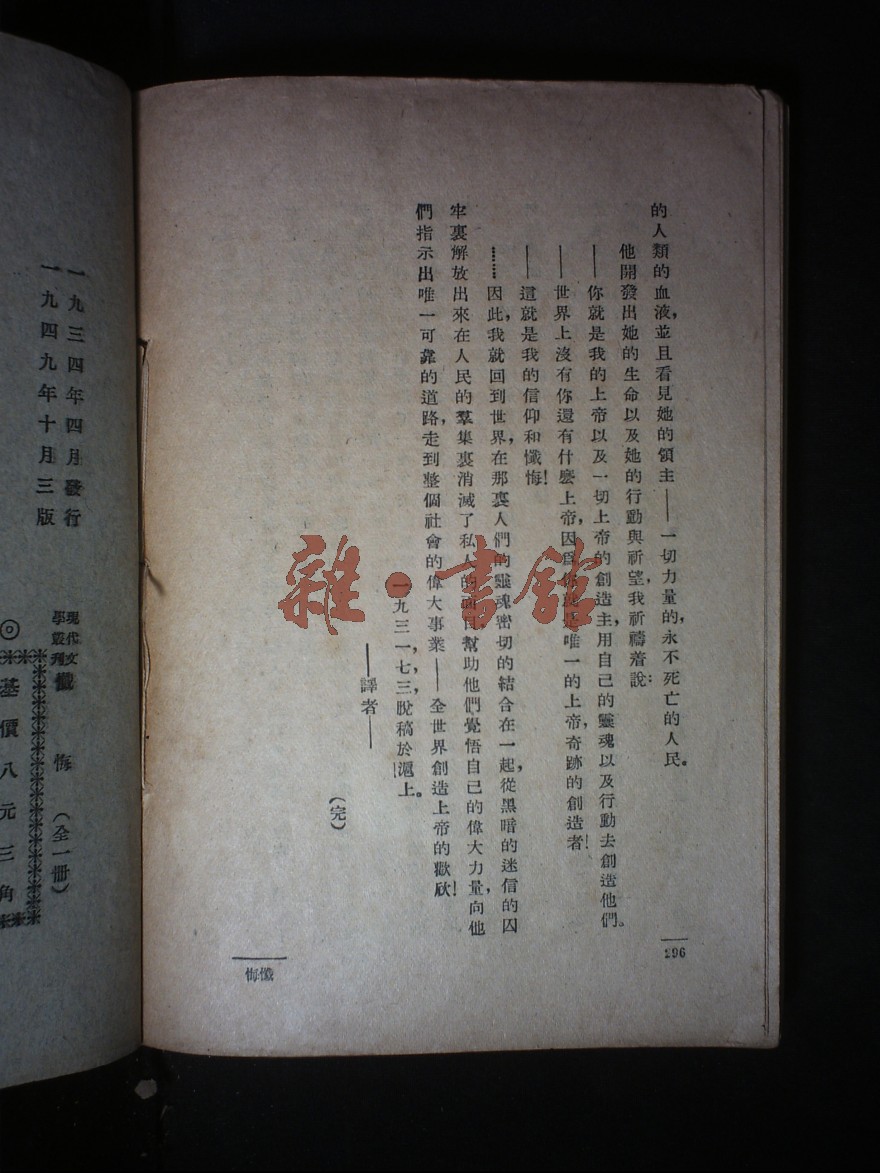 的人類的血液，並且看見她的領主——一切力量的，永不死亡的人民。
他開發出她的生命以及她的行動與祈望，我祈禱着說：
——你就是我的上帝以及一切上帝的創造主，用自己的靈魂以及行動去創造他們。
——世界上沒有你還有什麼上帝，因爲你就是唯一的上帝，奇跡的創造者！
——這就是我的信仰和懺悔！
……因此，我就回到世界，在那裏人們的靈魂密切的結合在一起，從黑暗的迷信的囚
牢裏解放出來在人民的羣集裏消滅了私人的面目，幫助他們覺悟自己的偉大力量，向他
們指示出唯一可靠的道路，走到整個社會的偉大事業——全世界創造上帝的歡欣！
一九三一，七，三，脫稿於滬上。
——譯者——
（完）
296
懺悔
一九三四年四月發行
一九四九年十月三版
現代文學叢刊 懺悔（全一冊）
◎基價八元三角
雜·書館